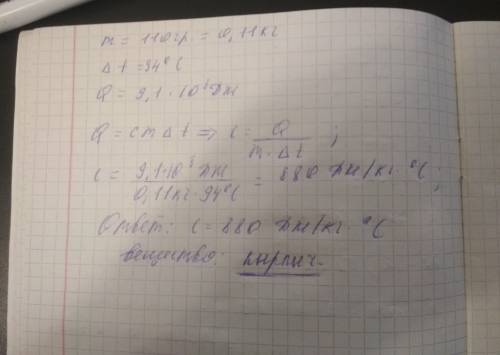 m = 110гр. = 0,11кг
Δt = 94°C
Q = 9,1·10³Дж
Q = cmΔt => c = Q / m·Δt ;
c = 9,1·10³ Дж / 0,11кг·94°C = 880 Дж/кг·°C ;
Ответ: c = 880 Дж/кг·°C
вещество: кирпич.